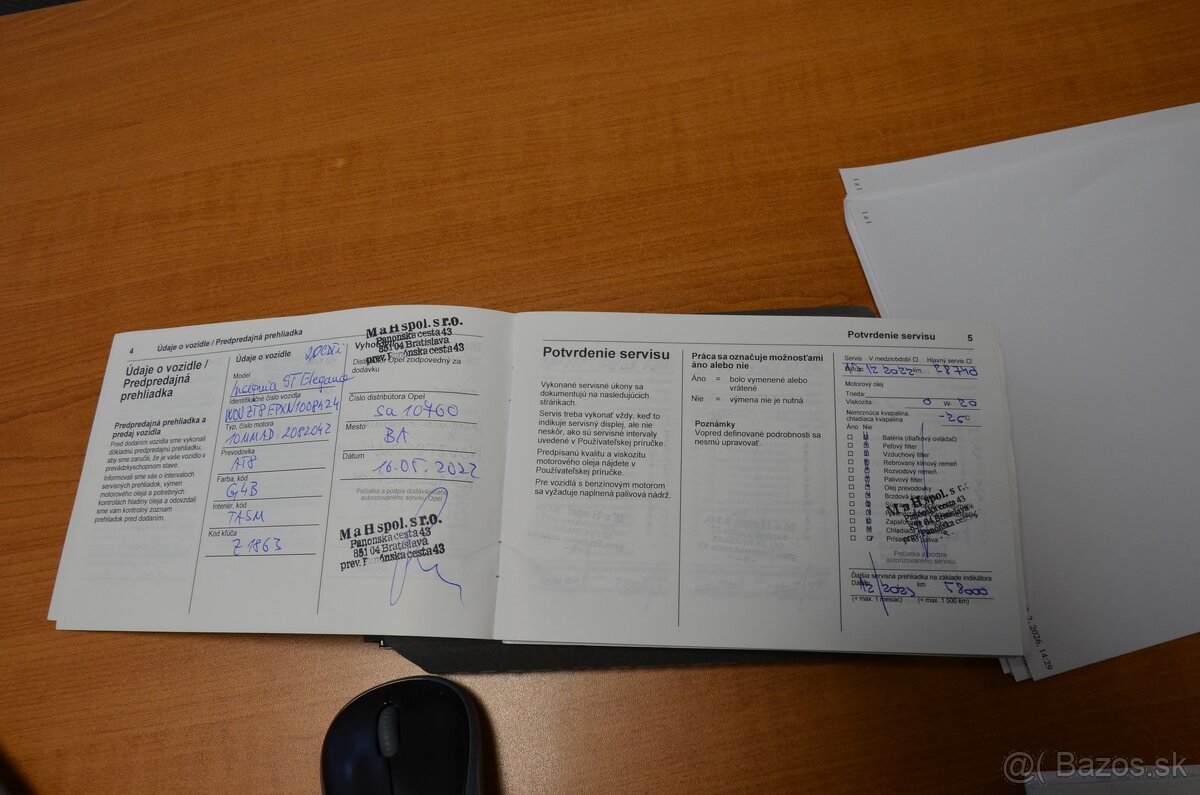 4 Údaje o vozidle / Predpredajná prehliadka
Údaje o vozidle /
Predpredajná
prehliadka
Predpredajná prehliadka a
predaj vozidla
Pred dodaním vozidla sme vykonali
dôkladnú predpredajnú prehliadku,
aby sme zaručili, že je vaše vozidlo v
prevádzkyschopnom stave.
Informovali sme vás o intervaloch
servisných prehliadok, výmen
motorového oleja a potrebných
kontrolách hladiny oleja a odovzdali
sme vám kontrolný zoznam
prehliadok pred dodaním.
Údaje o vozidle
Model
Insignia ST Elegance
Identifikačné číslo vozidla
Typ, číslo motora
10MMAD 2082042
Prevodovka
AT8
Farba, kód
G4B
Interiér, kód
TASM
Kód kľúča
Z1863
M a H spol. s r.o.
Panónska cesta 43
851 04 Bratislava
prev. Panónska cesta 43
Opel zodpovedný za
dodávku
Číslo distribútora Opel
Sa 10760
Mesto
BA
Dátum
16.05.2022
Pečiatka a podpis dodávajúceho
autorizovaného servisu Opel
M a H spol. s r.o.
Panónska cesta 43
851 04 Bratislava
prev. Panónska cesta 43
Potvrdenie servisu 5
Potvrdenie servisu
Vykonané servisné úkony sa
dokumentujú na nasledujúcich
stránkach.
Servis treba vykonať vždy, keď to
indikuje servisný displej, ale nie
neskôr, ako sú servisné intervaly
uvedené v Používateľskej príručke.
Predpísanú kvalitu a viskozitu
motorového oleja nájdete v
Používateľskej príručke.
Pre vozidlá s benzínovým motorom
sa vyžaduje naplnená palivová nádrž.
Práca sa označuje možnosťami
áno alebo nie
Áno = bolo vymenené alebo
vrátené
Nie = výmena nie je nutná
Poznámky
Vopred definované podrobnosti sa
nesmú upravovať.
Servis V medziobdobí Hlavný servis
12 2022 km 28740
Motorový olej
Trieda:
Viskozita: 0 W- 20
Nemrznúca kvapalina,
chladiaca kvapalina -25°
Áno Nie
Batéria (diaľkový ovládač)
Peľový filter
Vzduchový filter
Rebrovaný klinový remeň
Rozvodový remeň
Palivový filter
Olej prevodovky
M a H spol. s r.o.
Panónska cesta 43
851 04 Bratislava
prev. Panónska cesta 43
Pečiatka a podpis
autorizovaného servisu
Ďalšia servisná prehliadka na základe indikátora
Dátum 12/2023 km 58000
(+ max. 1 mesiac) (+ max. 1 500 km)
1 z 1
1 z 1
2026, 14:29
@( Bazos.sk